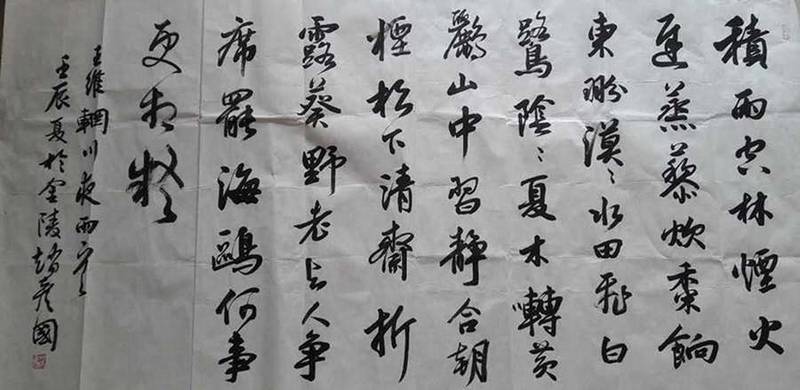 積雨空林煙火
遲蒸藜炊黍餉
東菑漠〻水田飛白
鷺陰〻夏木囀黃
鸝山中習靜合朝
槿松下清齋折
露葵野老与人争
席罷海鷗何事
更相疑
王維輞川夜雨
壬辰夏於金陵趙彥國